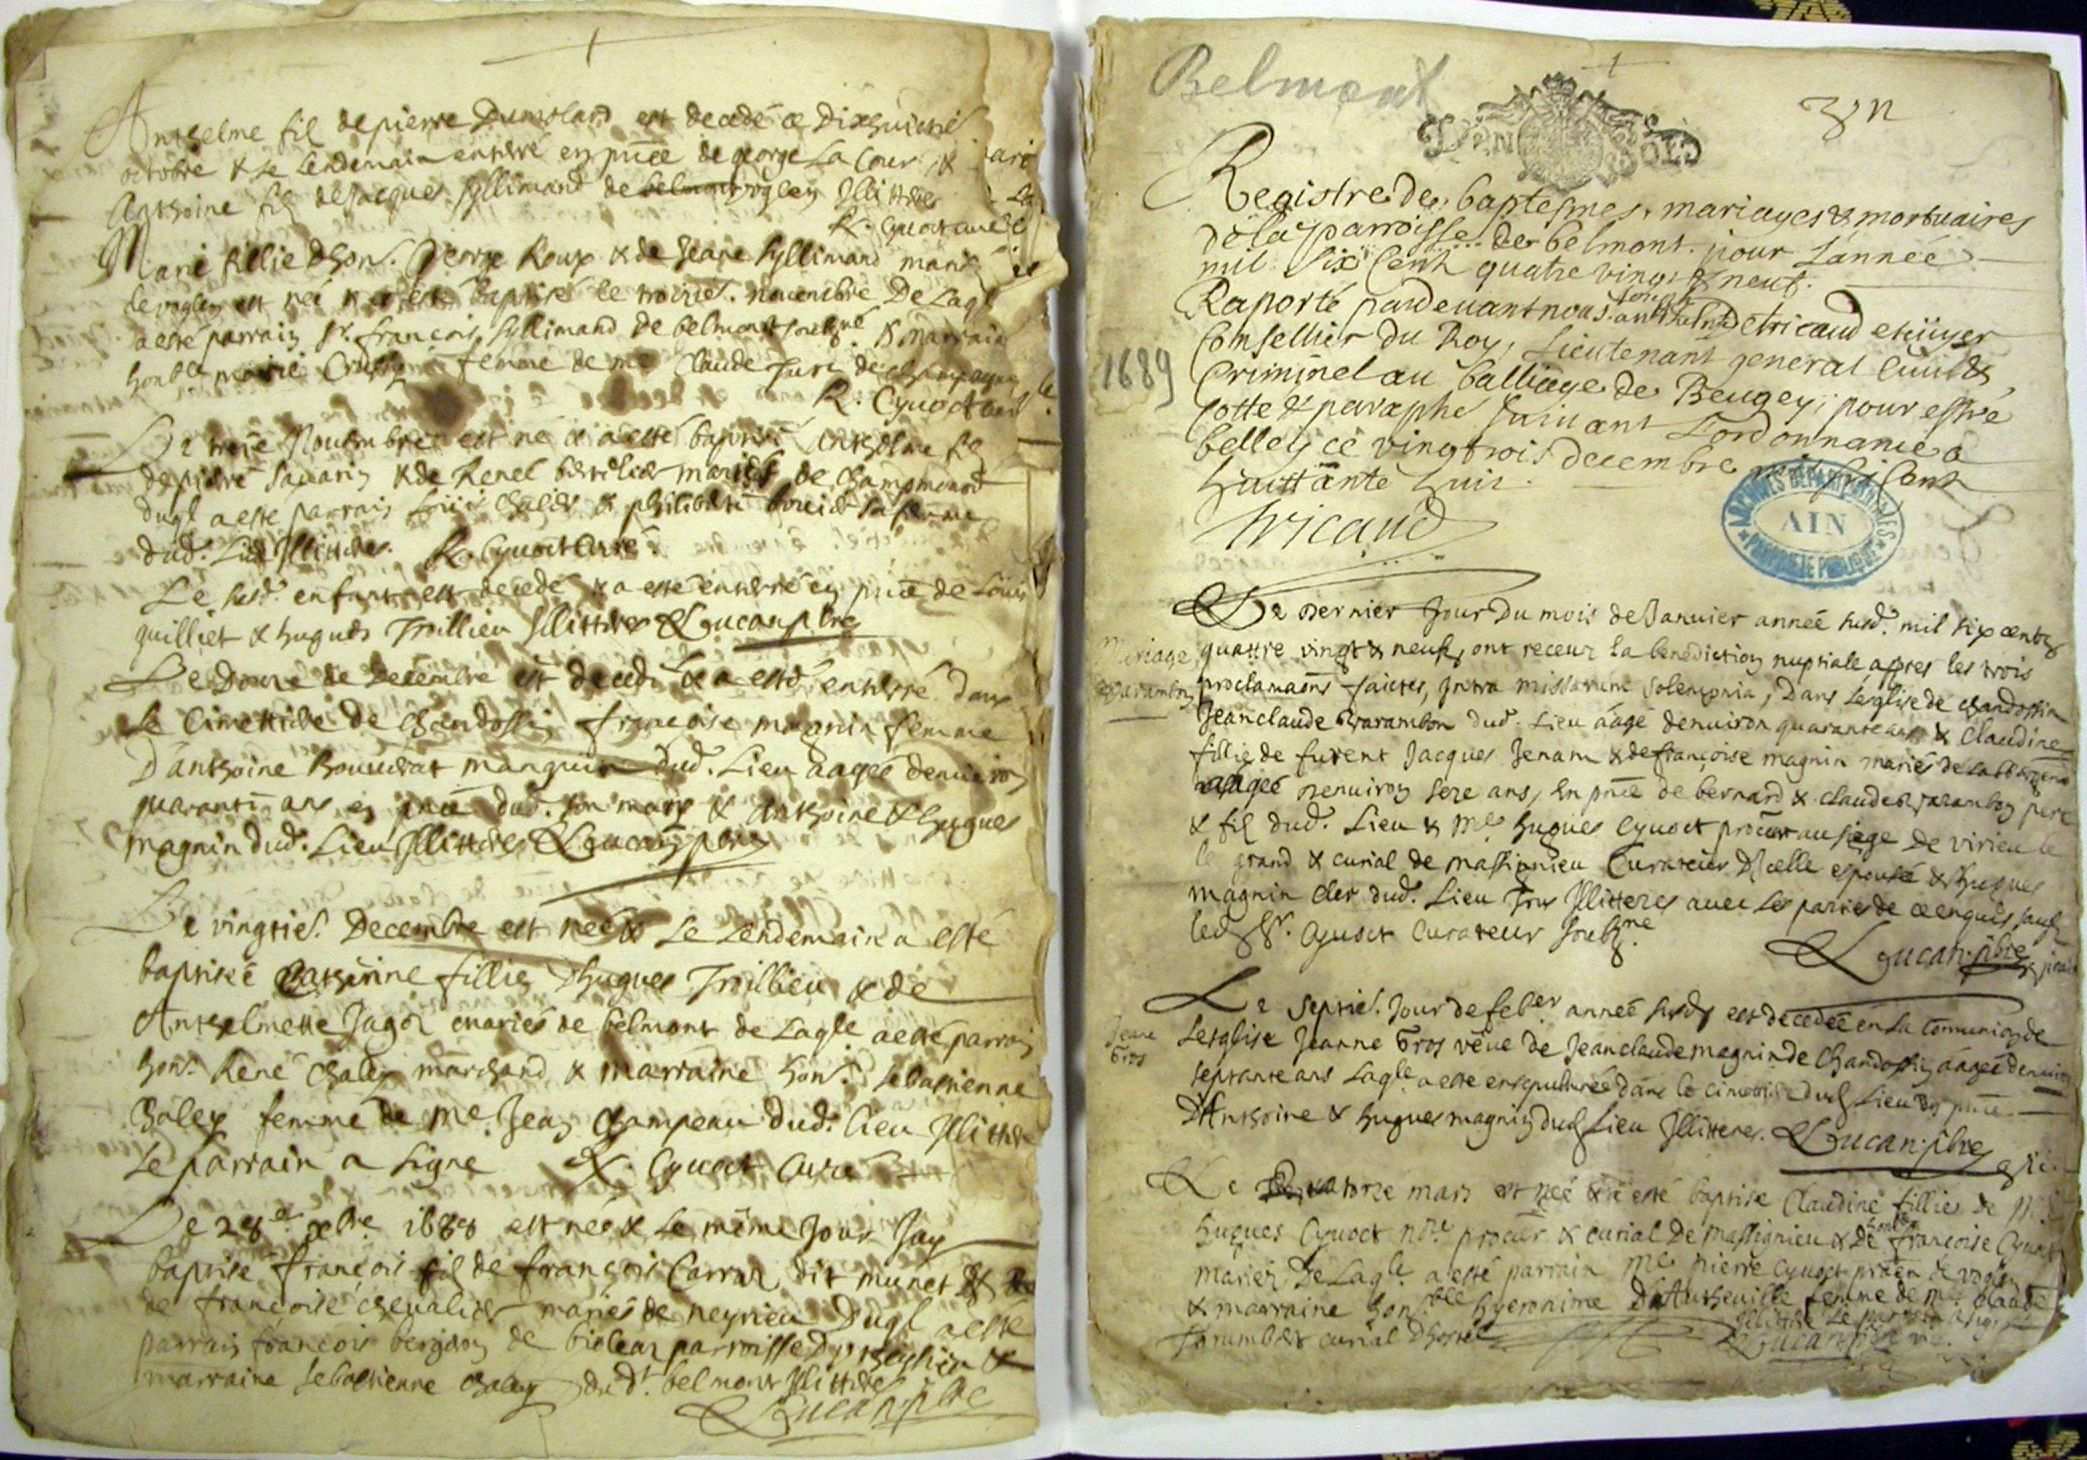 Anthelme fil de pierre Dumolard est decedé ce dixhuictie
octobre & le lendemain enterré en pnce de george La Cour &
Anthoine fil de Jacques Jyllimand de voglen Illitteres
R. Cyuoct curé
Marie fillie dhon. George Roux & de Jeane Jyllimand mariés
de voglen est née & a esté baptisé le troizies. novembre De Laqle
a esté parrain Sr. françois Jyllimand de belmont soubzné & marraine
honble marie femme de me Claude Jure de champagne
R. Cyuoct curé
Le trese Novembre est né & a esté baptisé Anthelme fil
de pierre Sauarin & de Renel mariés de champmenod
duql a esté parrain Louis chaley & philiberte sa femme
dud. Lieu Illitteres. R. Cyuoct Curé
Le susd. enfant est decedé & a esté enterré en pnce de Louis
quilliet & hugues Trillieu Illitteres Lucan pbre
Le Douze de Decembre est decedé & a esté enterré dans
le Cimettiere de Chandossin françoise magnin femme
D'anthoine manguin dud. Lieu aagée denuiron
quarante ans en pnce dud. son mary & Anthoine & hugues
magnin dud. Lieu Illitteres Lucan pbre
Le vingties. Decembre est née & Le Lendemain a esté
baptisée Catherine fillie dhugues Trillieu & de
Anthelmette Jagoz mariés de belmont de Laqle a esté parrain
hon. René Chaley marchand & marraine hon. Sebastienne
Chaley femme de Me. Jean Champeau dud. lieu Illittere
Le parrain a signe R. Cyuoct Curé
Le 28e xbre 1688 est née & Le même Jour Jay
baptisé françois fil de françois Carraz dit munet & de
de françoise cheualier mariés de neyrieu Duql a esté
parrain françois de parroisse &
marraine Sebastienne Chaley dudt. belmont Illitteres
Lucan pbre
Belmont
DEN SOLS
Registre des baptesmes, mariages & mortuaires
de la parroisse de belmont pour L'année
mil six Cent quatre vingt & neuf.
Raporté pardeuant nous Anthelme Detricaud escuyer
Conseillier du Roy, Lieutenant general Ciuil &
Criminel au balliage de Beugey, pour estre
Cotte & paraphé suiuant L'ordonnance a
belley ce vingtrois decembre mil six Cent
huittante huit.
tricaud
1689
ARCHIVES DEPARTEMENTALES
AIN
PROPRIETE PUBLIQUE
Le Dernier Jour Du mois de Januier année susd. mil six centz
Mariage
quattre vingt & neuf, ont receuz La benediction nuptiale appres les trois
proclamaons faictes, Intra missarum Solempnia, Dans L'esglise de Chandossin
Jeanclaude Darambon dud. Lieu aagé denuiron quarante ans & Claudine
fillie de furent Jacques Jenam & de françoise magnin mariés de
aagée Denuiron seze ans, En pnce de bernard & claude Darambon pere
& fil dud. Lieu & Me hugues Cyuoct procur au siege De virieu le
le grand & curial de massignieu Curateur D'Icelle espouse & hugues
magnin Cler dud. Lieu Tous Illitteres auec Les parties de ce enquis sauf
led Sr. Cyuoct Curateur soubzne
Lucan pbre
Jeane
Gros
Le septies. Jour de feber année susd est decedée en La Communion de
Lesglise Jeanne Gros veue de Jeanclaude magnin de Chandossin aagée denuiron
septante ans Laqle a esté ensepulturée dans le cimettiere dud Lieu en pnce
D'Anthoine & hugues magnin dud Lieu Illitteres. Lucan pbre
Le quatorze mars est née & a esté baptisée Claudine fillie de Me
hugues Cyuoct nre procur & curial De massignieu & De honble françoise Cyuoct
mariés De Laqle a esté parrain Me pierre Cyuoct de voglen
& marraine honble hyeronime femme de Me Claude
curial Dhostel Illittere Le parrain a signé
Lucan pbre